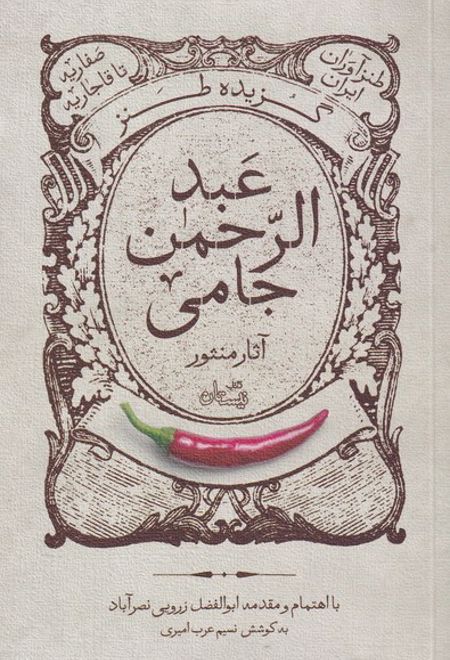 طنزآوران
ایران
صفاریه
تا قاجاریه
گزیده طنز
عَبد
الرّحمٰن
جامی
آثار منثور
نیستان
با اهتمام و مقدمه ابوالفضل زرویی نصرآباد
به کوشش نسیم عرب امیری